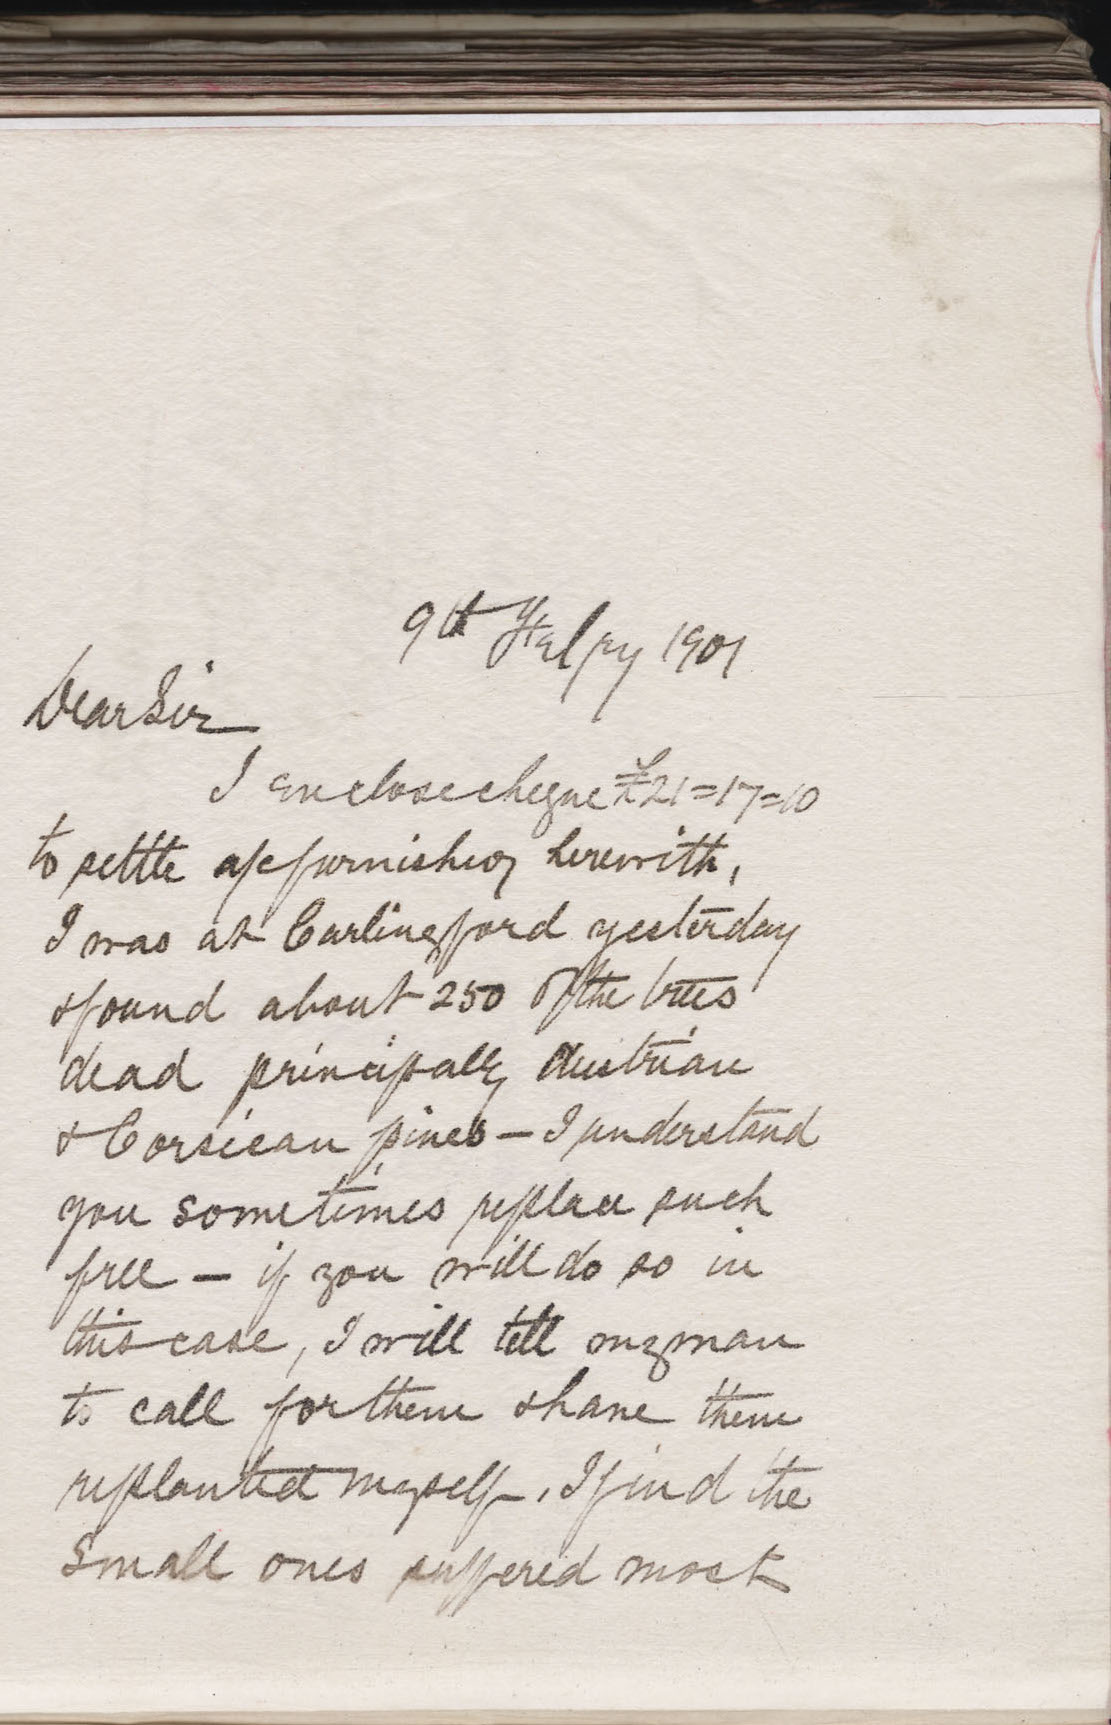 9th Feby 1901
Dear Sir
I enclose cheque £21=17=10
to settle a/c furnished herewith,
I was at Carlingford yesterday
& found about 250 of the trees
dead principally Austrian
& Corsican pines – I understand
you sometimes replace such
free – if you will do so in
this case, I will tell my man
to call for them & have them
replanted myself. I find the
small ones suffered most